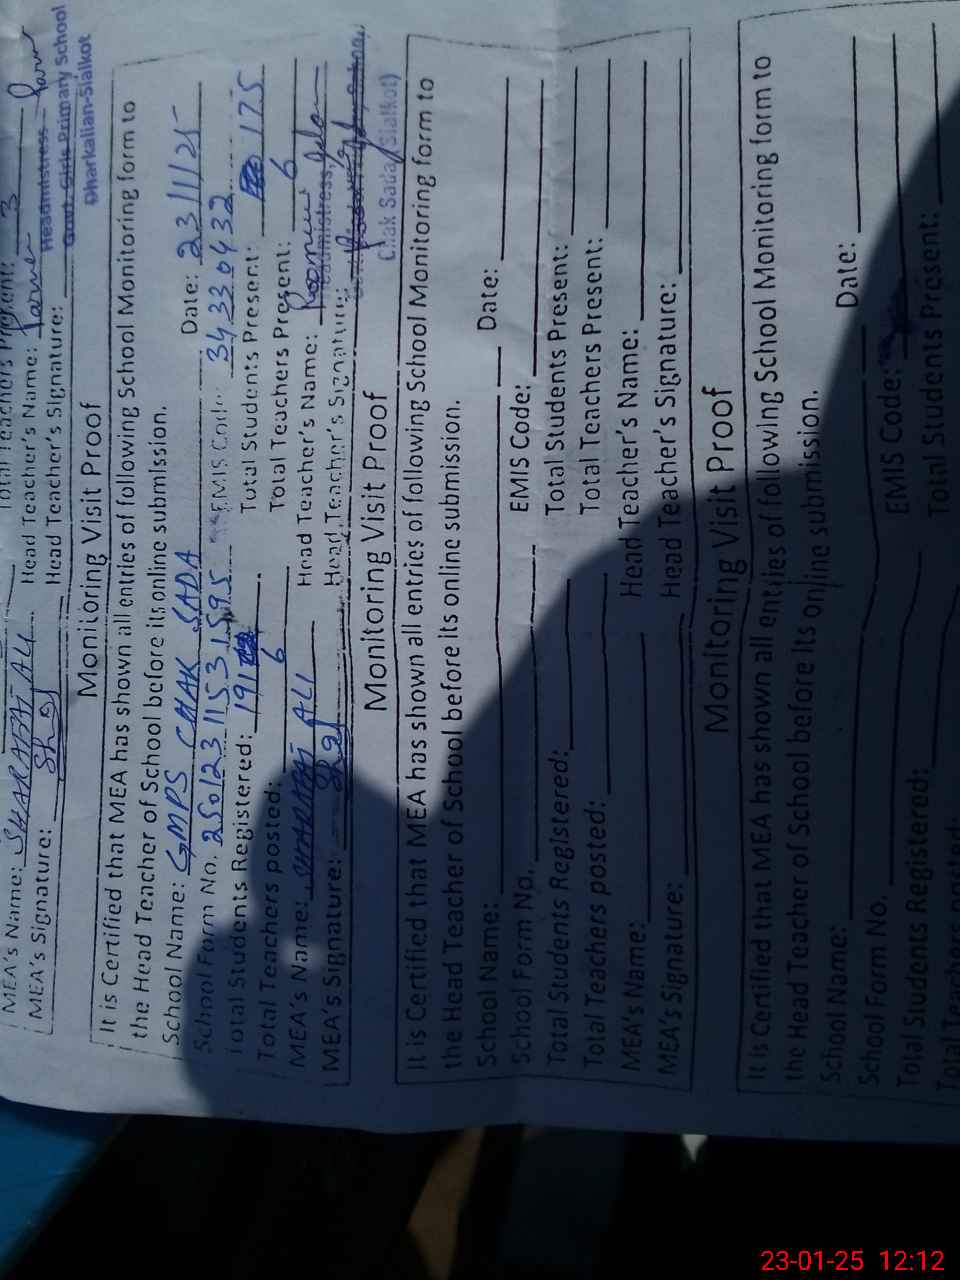 Total Teachers Present: 3
MEA's Name: SHARAFAT ALI Head Teacher's Name:
MEA's Signature: Head Teacher's Signature:
Headmistress
Govt. Girls Primary School
Dharkalian-Sialkot
Monitoring Visit Proof
It is Certified that MEA has shown all entries of following School Monitoring form to
the Head Teacher of School before its online submission.
School Name: GMPS CHAK SADA Date: 23/1/25
School Form No. 250123 1153 1595 EMIS Code: 34330432
Total Students Registered: 191 Total Students Present: 175
Total Teachers posted: 6 Total Teachers Present: 6
MEA's Name: SHARAFAT ALI Head Teacher's Name:
MEA's Signature: Head Teacher's Signature:
Headmistress
Chak Sada (Sialkot)
Monitoring Visit Proof
It is Certified that MEA has shown all entries of following School Monitoring form to
the Head Teacher of School before its online submission.
School Name: Date:
School Form No. EMIS Code:
Total Students Registered: Total Students Present:
Total Teachers posted: Total Teachers Present:
MEA's Name: Head Teacher's Name:
MEA's Signature: Head Teacher's Signature:
Monitoring Visit Proof
It is Certified that MEA has shown all entries of following School Monitoring form to
the Head Teacher of School before its online submission.
School Name: Date:
School Form No. EMIS Code:
Total Students Registered: Total Students Present:
Total Teachers posted:
23-01-25 12:12